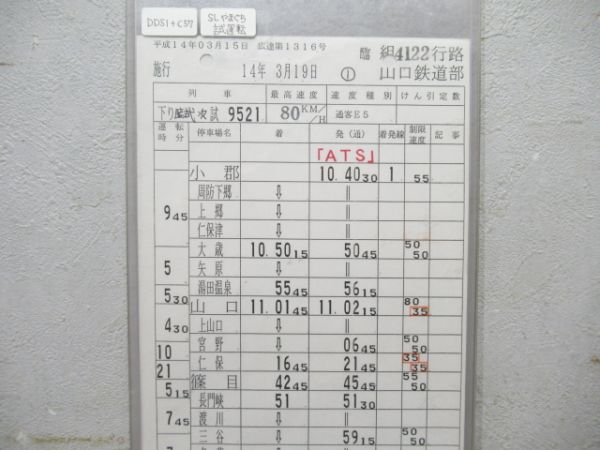 DD51+C57
SLやまぐち
試運転
平成14年03月15日 広達第1316号
臨 組4122行路
施行 14年 3月19日 ① 山口鉄道部
列車 最高速度 速度種別 けん引定数
下り 試 9521 80 KM/H 通客E5
運転時分 停車場名 着 発(通) 着発線 制限速度 記事
「ATS」
小郡 10.4030 1 55
周防下郷 ⇩ ||
945 上郷 ⇩ ||
仁保津 ⇩ ||
大歳 10.5015 5045 50 50
5 矢原 ⇩ ||
湯田温泉 5545 5615
530 山口 11.0145 11.0215 80 35
430 上山口 ⇩ ||
宮野 ⇩ 0645 50 50
10 仁保 1645 2145 35 35
21 篠目 4245 4545 55 50
515 長門峡 51 5130
745 渡川 ⇩ ||
三谷 ⇩ 5915 50 50